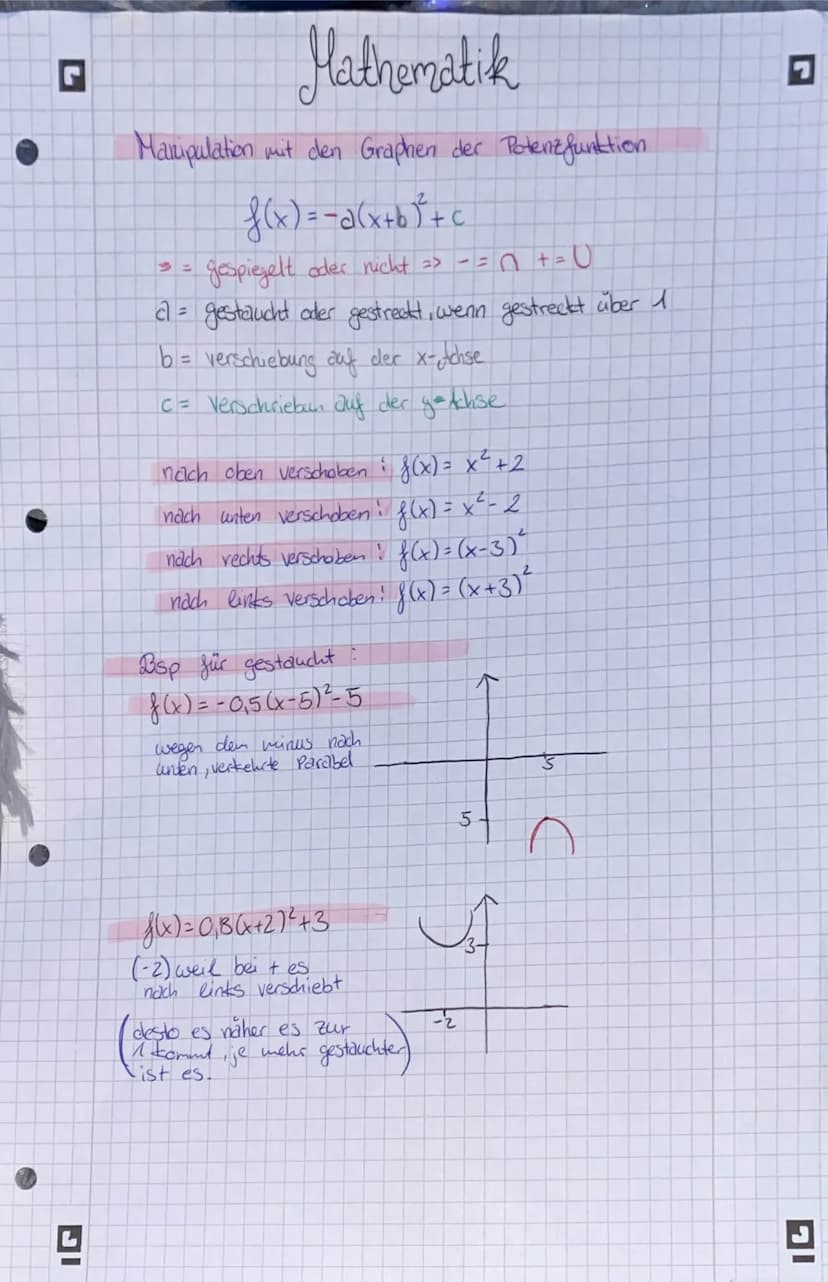 Mathematik
Manipulation mit den Graphen der Potenzfunktion
f(x)=-a(x+b)²+c
- = gespiegelt oder nicht => - = ∩ + = U
a = gestaucht oder gestreckt, wenn gestreckt über 1
b = verschiebung auf der x-Achse
c = Verschrieben auf der y-Achse
nach oben verschoben: f(x) = x²+2
nach unten verschoben: f(x) = x²-2
nach rechts verschoben: f(x)=(x-3)²
nach links verschoben: f(x) = (x+3)²
Bsp für gestaucht:
f(x) = -0,5(x-5)²-5
wegen dem minus nach
unten, verkehrte Parabel
5
5
f(x)=0,8(x+2)²+3
3
(-2) weil bei + es
nach links verschiebt
-2
(desto es näher es zur
1 kommt, je mehr gestauchter
ist es.)